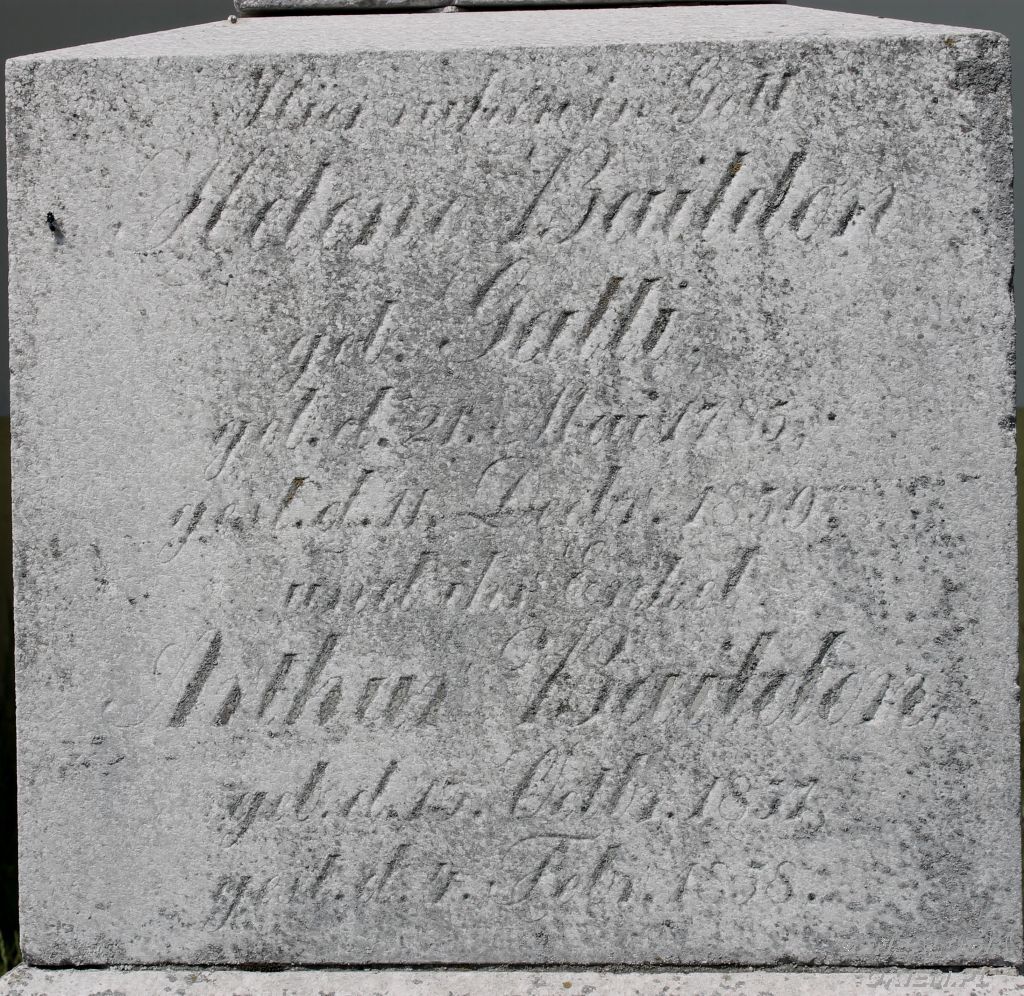 Hier ruhen in Gott
Helene Baildon
geb. Galli
geb. d. 21. Mai 1785,
gest. d. 11. Decbr. 1859
und ihr Enkel
Arthur Baildon,
geb. d. 15. Octbr. 1857,
gest. d. 4. Febr. 1858.